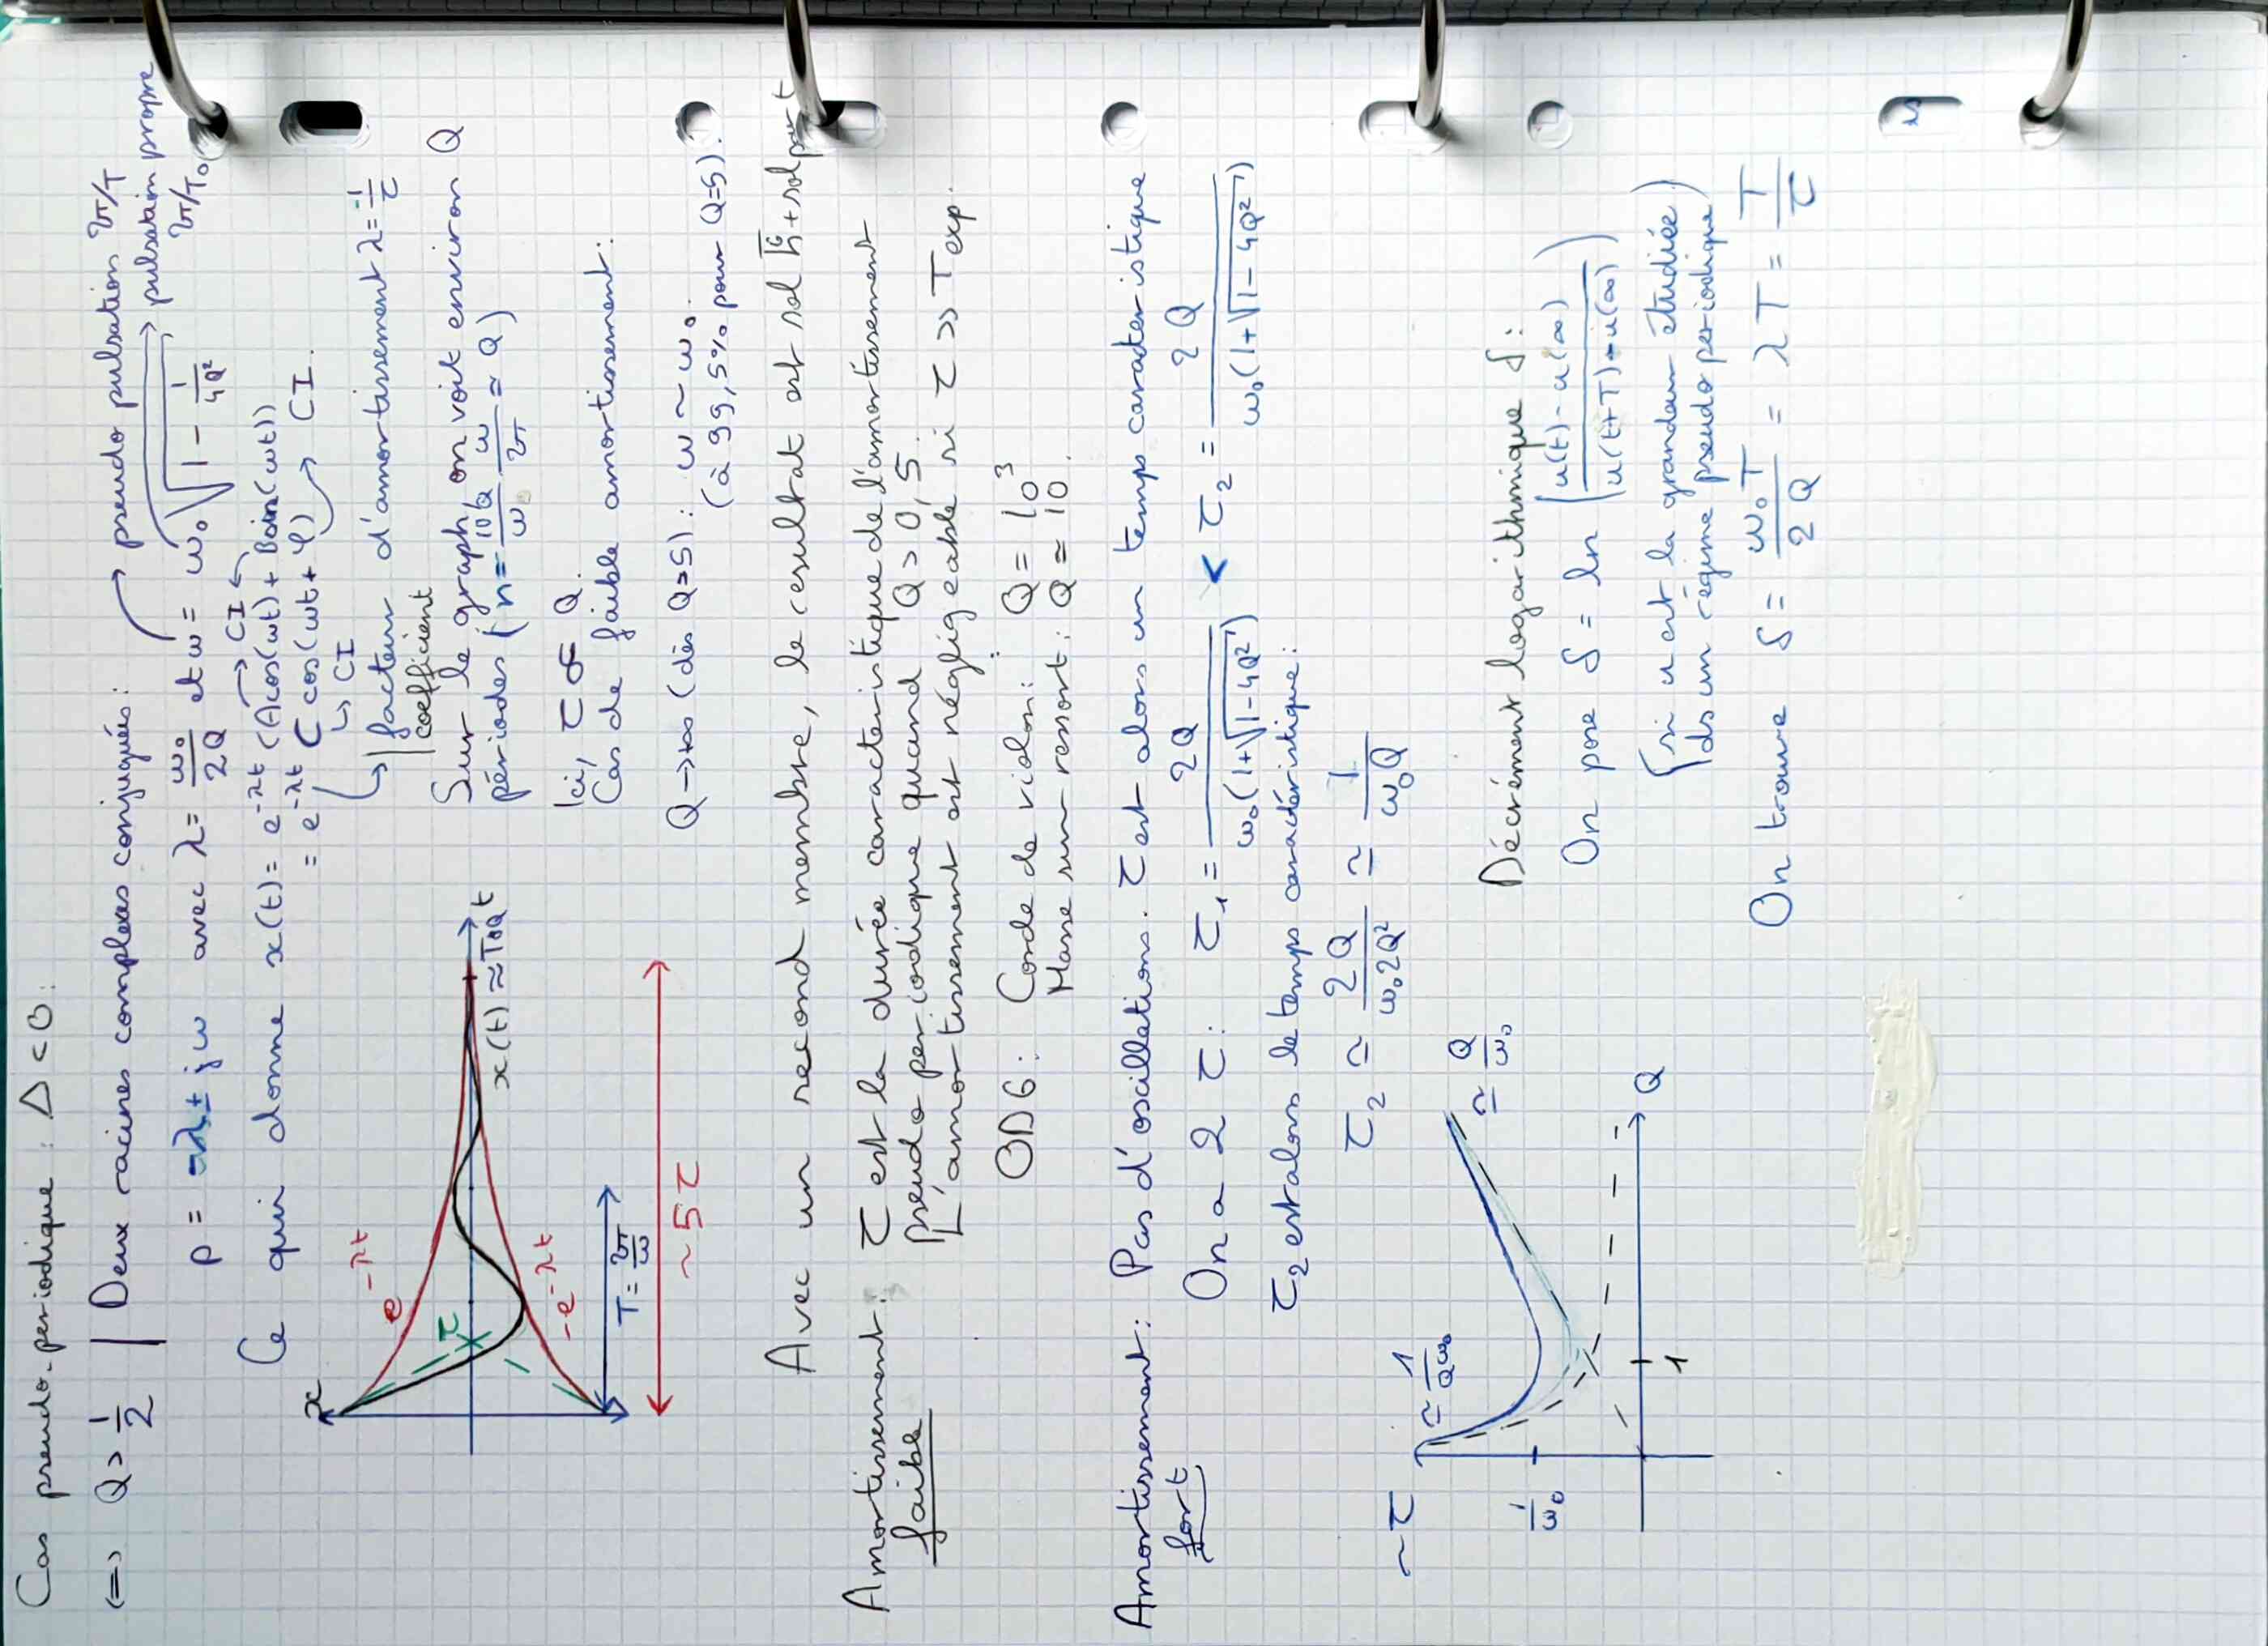 Cas pseudo-periodique : Δ < 0 :
⟺ Q > 1/2 | Deux racines complexes conjuguées :
→ pseudo pulsation 2π/T
p = -λ ± jω avec λ = ω₀/2Q et ω = ω₀ √(1 - 1/4Q²)
→ pulsation propre 2π/T₀
Ce qui donne x(t) = e^-λt (A cos(ωt) + B sin(ωt))
→ CI ←
= e^-λt C cos(ωt + φ) → CI.
↳ CI
↳ facteur d'amortissement λ = 1/τ
coefficient
x
e^-λt
τ
-e^-λt
x(t) ≈ T₀Q t
T = 2π/ω
~ 5τ
Sur le graph, on voit environ Q
périodes (n = 10Q/ω₀ ω/2π ≃ Q)
Ici, τ ∝ Q.
Cas de faible amortissement :
Q → +∞ (dès Q = 5) : ω ~ ω₀.
(à 99,5% pour Q=5).
Avec un second membre, le resultat est sol h + sol part
Amortissement faible : τ est la durée caracteristique de l'amortissement
pseudo periodique quand Q > 0,5.
L'amortissement est négligeable si τ >> T exp.
ODG : Corde de violon : Q = 10³
Masse sur ressort : Q = 10.
Amortissement fort : Pas d'oscillations. τ est alors un temps caracteristique
On a 2 τ : τ₁ = 2Q / ω₀(1+√(1-4Q²)) < τ₂ = 2Q / ω₀(1+√(1-4Q²))
τ₂ est alors le temps caractéristique :
τ₂ ≃ 2Q / ω₀2Q² ≃ 1 / ω₀Q
~ τ
≃ 1/Qω₀
≃ Q/ω₀
1/ω₀
1
Q
Décrément logarithmique δ :
On pose δ = ln | (u(t) - u(∞)) / (u(t+T) - u(∞)) )
(si u est la grandeur étudiée)
(ds un régime pseudo periodique)
On trouve δ = ω₀T / 2Q = λT = T/τ